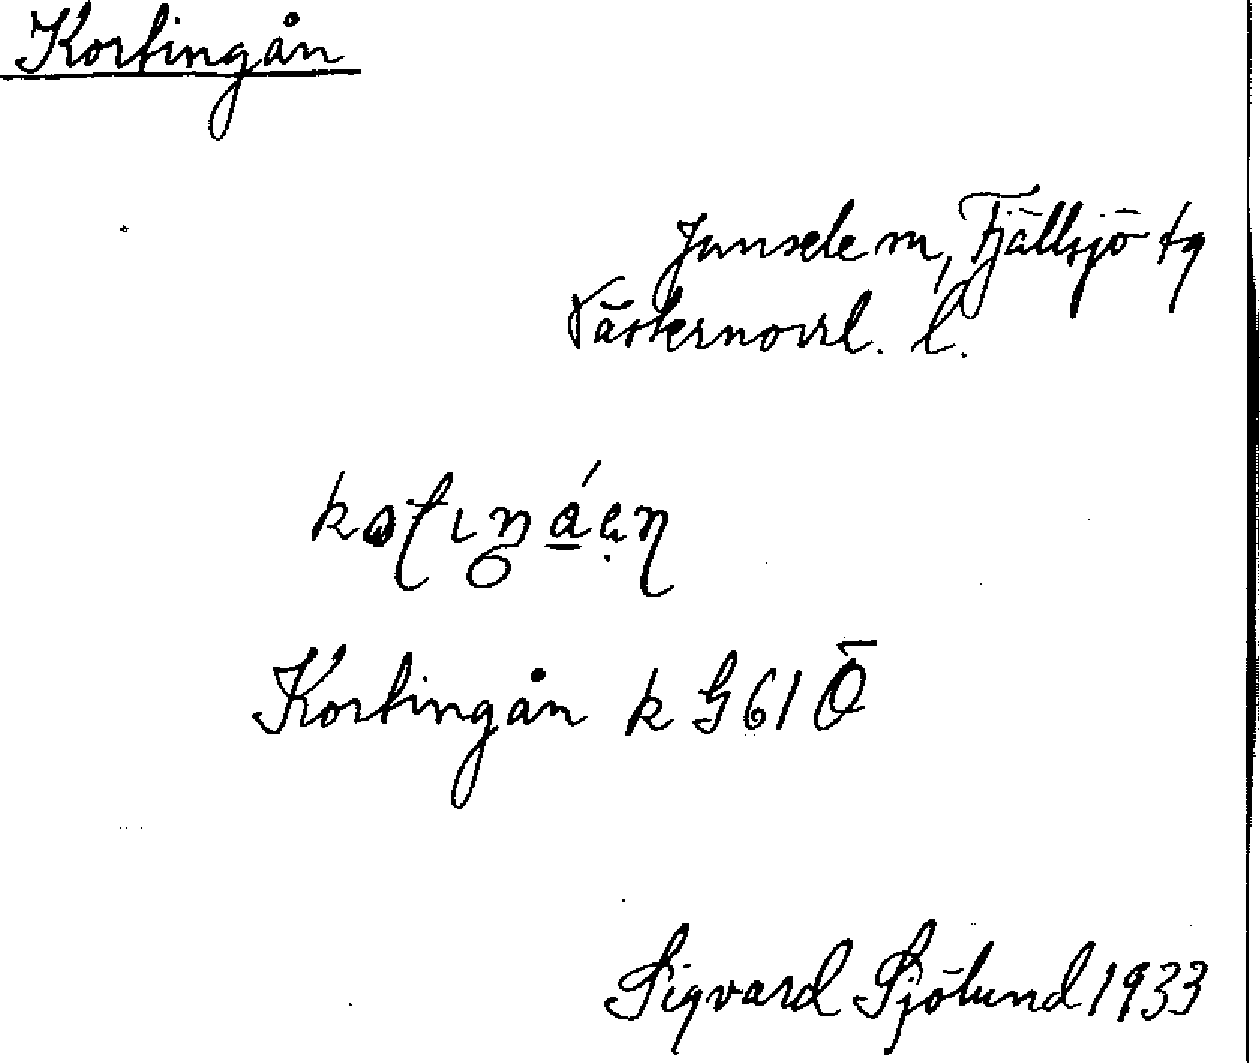 Kortingån
Junsele sn, Fjällsjö tg
Västernorrl. l.
Kortingån k G61 Ö
Sigvard Sjölund 1933